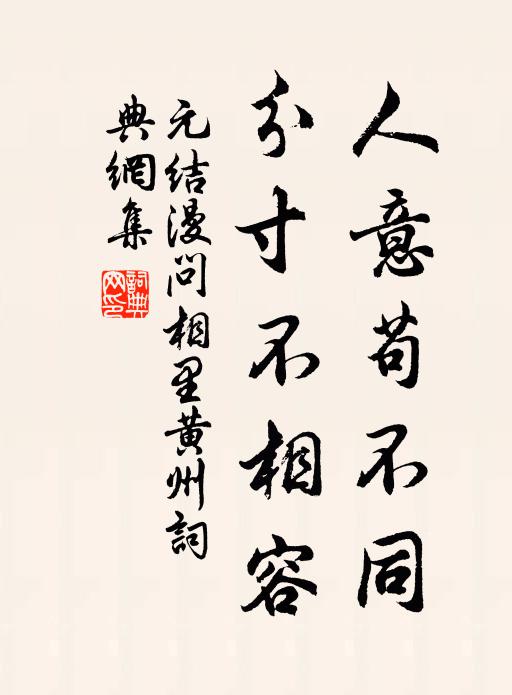 人意苟不同
分寸不相容
元结漫问相里黄州詞
典網集
詞典
网印